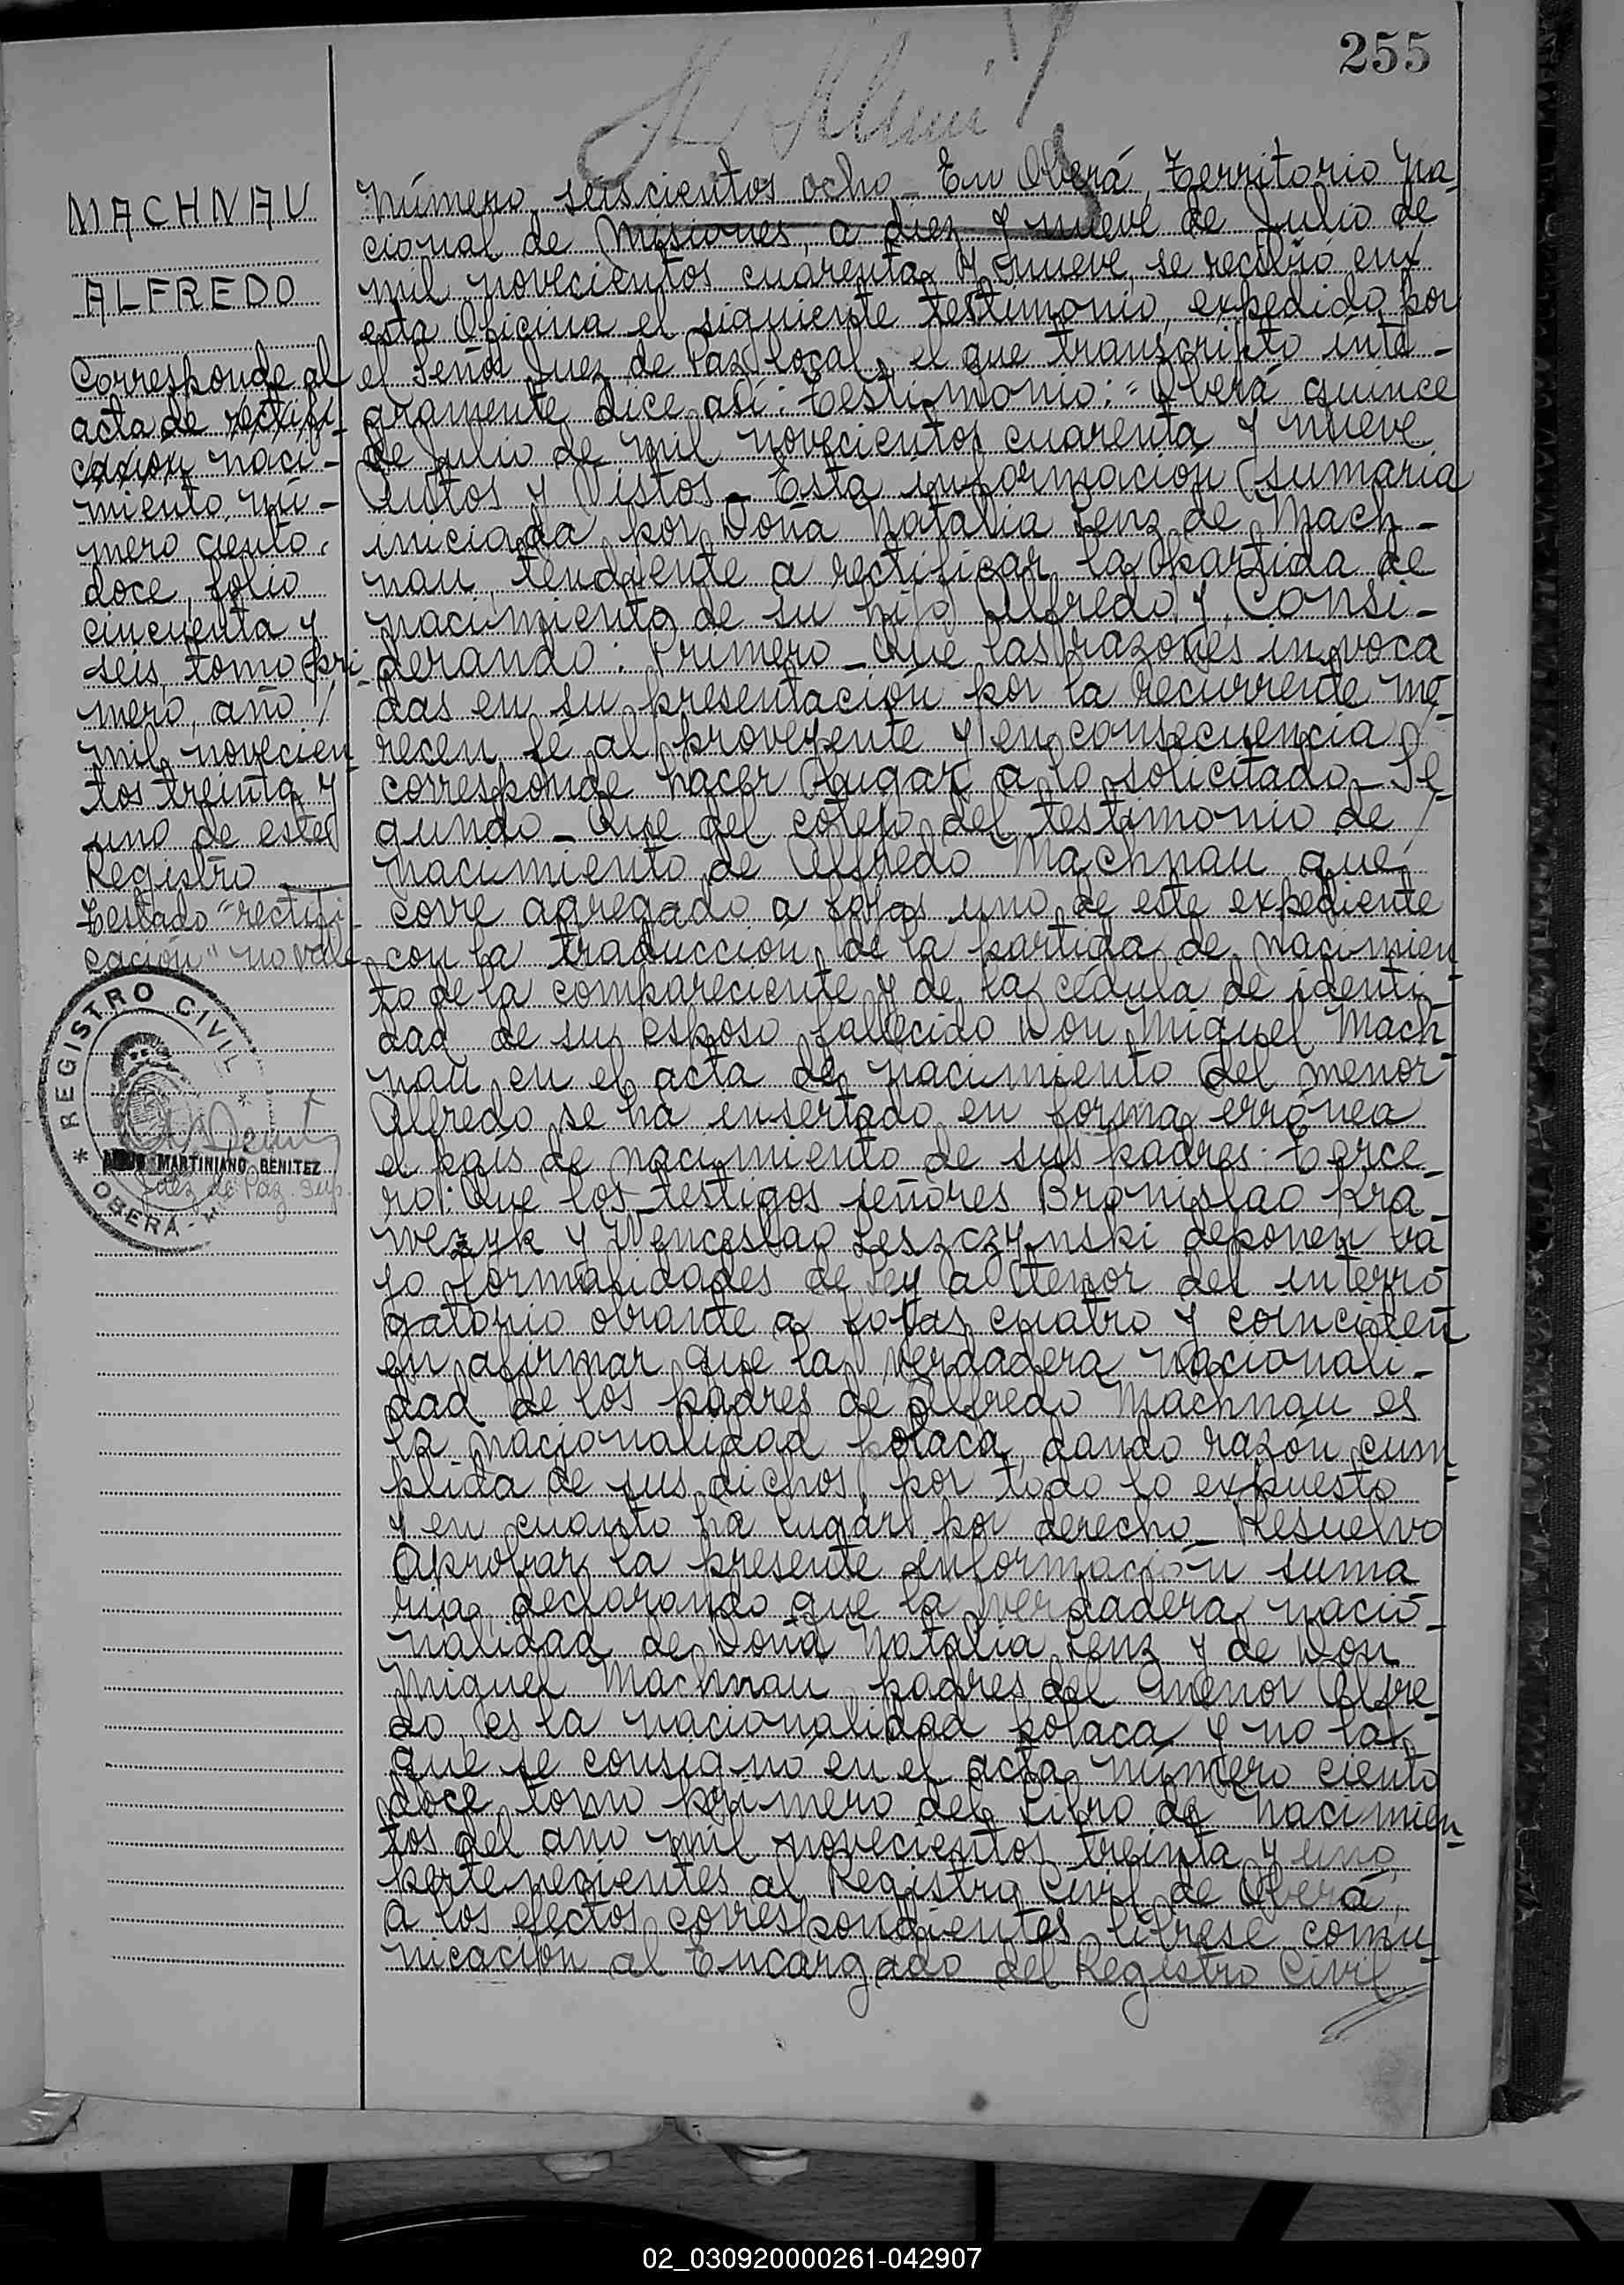 255
MACHNAU
ALFREDO
Corresponde al
acta de rectifi-
cación naci-
miento, nú-
mero ciento
doce, folio
cincuenta y
seis, tomo pri-
mero, año /
mil novecien
tos treinta y
uno de este
Registro
Testado "rectifi-
cación" no vale
REGISTRO CIVIL
* OBERÁ -
MARTINIANO BENITEZ
Juez de Paz Sup.
Número seiscientos ocho_ En Oberá, Territorio Na-
cional de Misiones, a diez y nueve de Julio de
mil novecientos cuarenta y nueve, se recibió en
esta Oficina el siguiente testimonio, expedido por
el Señor Juez de Paz local, el que transcripto ínte-
gramente dice así: Testimonio: "Oberá quince
de Julio de mil novecientos cuarenta y nueve
Autos y Vistos_ Esta información sumaria
iniciada por Doña Natalia Lenz de Mach-
nau, tendiente a rectificar la partida de
nacimiento de su hijo Alfredo y, Consi-
derando: Primero_ Que las razones invoca
das en su presentación por la recurrente me-
recen fé al proveyente y en consecuencia /
corresponde hacer lugar a lo solicitado_ Se-
gundo_ Que del cotejo del testimonio de /
nacimiento de Alfredo Machnau que
corre agregado a fojas uno de este expediente
con la traducción de la partida de nacimien-
to de la compareciente y de la cédula de identi-
dad de su esposo fallecido Don Miguel Mach-
nau, en el acta de nacimiento del menor
Alfredo se ha insertado en forma errónea
el país de nacimiento de sus padres. Terce-
ro: Que los testigos señores Bronislao Kra-
wezyk y Wenceslao Leszczynski deponen ba-
jo formalidades de ley a tenor del interro
gatorio obrante a fojas cuatro y coinciden
en afirmar que la verdadera nacionali-
dad de los padres de Alfredo Machnau es
la nacionalidad polaca, dando razón cum-
plida de sus dichos, por todo lo expuesto
y en cuanto ha lugar por derecho_ Resuelvo
Aprobar la presente información suma
ria, declarando que la verdadera nacio-
nalidad de Doña Natalia Lenz y de Don
Miguel Machnau, padres del menor Alfre-
do, es la nacionalidad polaca y no la
que se consignó en el acta número ciento
doce, tomo primero del Libro de Nacimien-
tos del año mil novecientos treinta y uno,
pertenecientes al Registro Civil de Oberá,
a los efectos correspondientes líbrese comu-
nicación al Encargado del Registro Civil
02_030920000261-042907